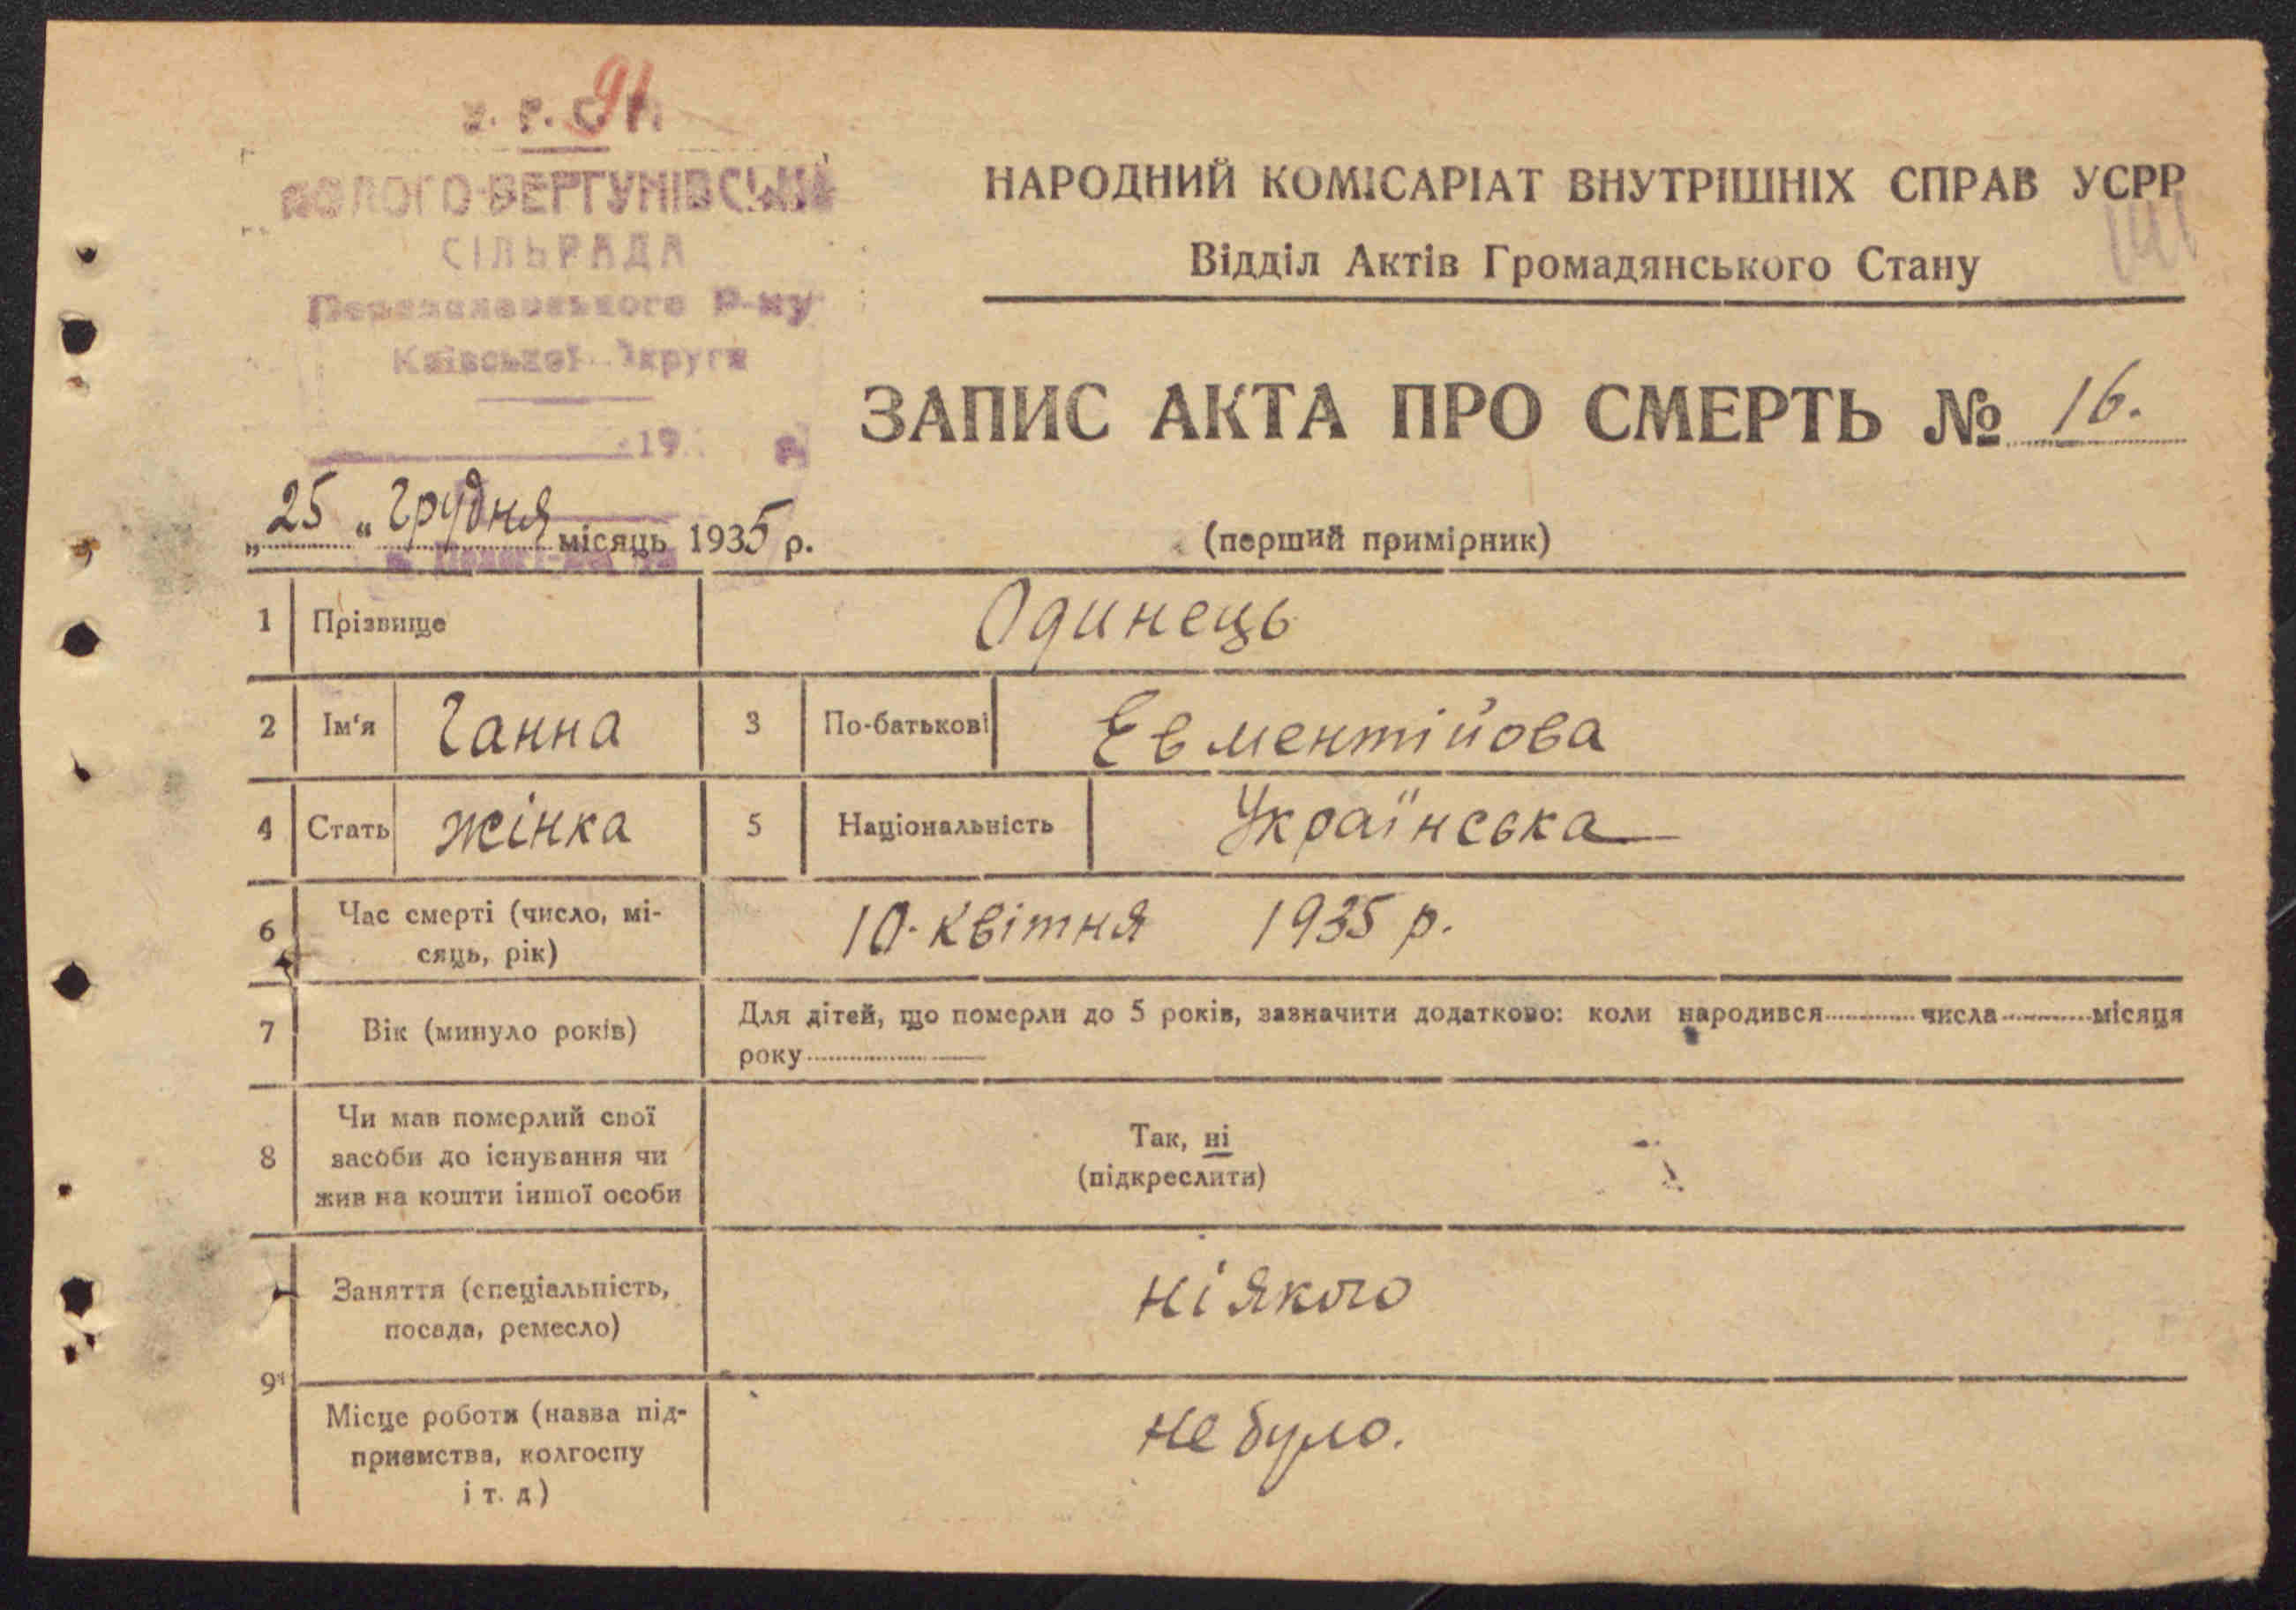 91
У. Р. С. Р.
ПОЛОГО-ВЕРГУНІВСЬКА
СІЛЬРАДА
Переяславського Р-ну
Київської Округи
19 р.
НАРОДНИЙ КОМІСАРІАТ ВНУТРІШНІХ СПРАВ УСРР
141
Відділ Актів Громадянського Стану
ЗАПИС АКТА ПРО СМЕРТЬ № 16.
„25“ грудня місяць 1935 р.
(перший примірник)
1 Прізвище Одинець
2 Ім'я Ганна 3 По-батькові Евментійова
4 Стать жінка 5 Національність Українська
6 Час смерті (число, мі-
сяць, рік) 10. квітня 1935 р.
7 Вік (минуло років) Для дітей, що померли до 5 років, зазначити додатково: коли народився числа місяця
року
8 Чи мав померлий свої
засоби до існування чи
жив на кошти іншої особи
Так, ні
(підкреслити)
9 Заняття (спеціальність,
посада, ремесло) ніякого
Місце роботи (назва під-
приємства, колгоспу
і т. д) не було.